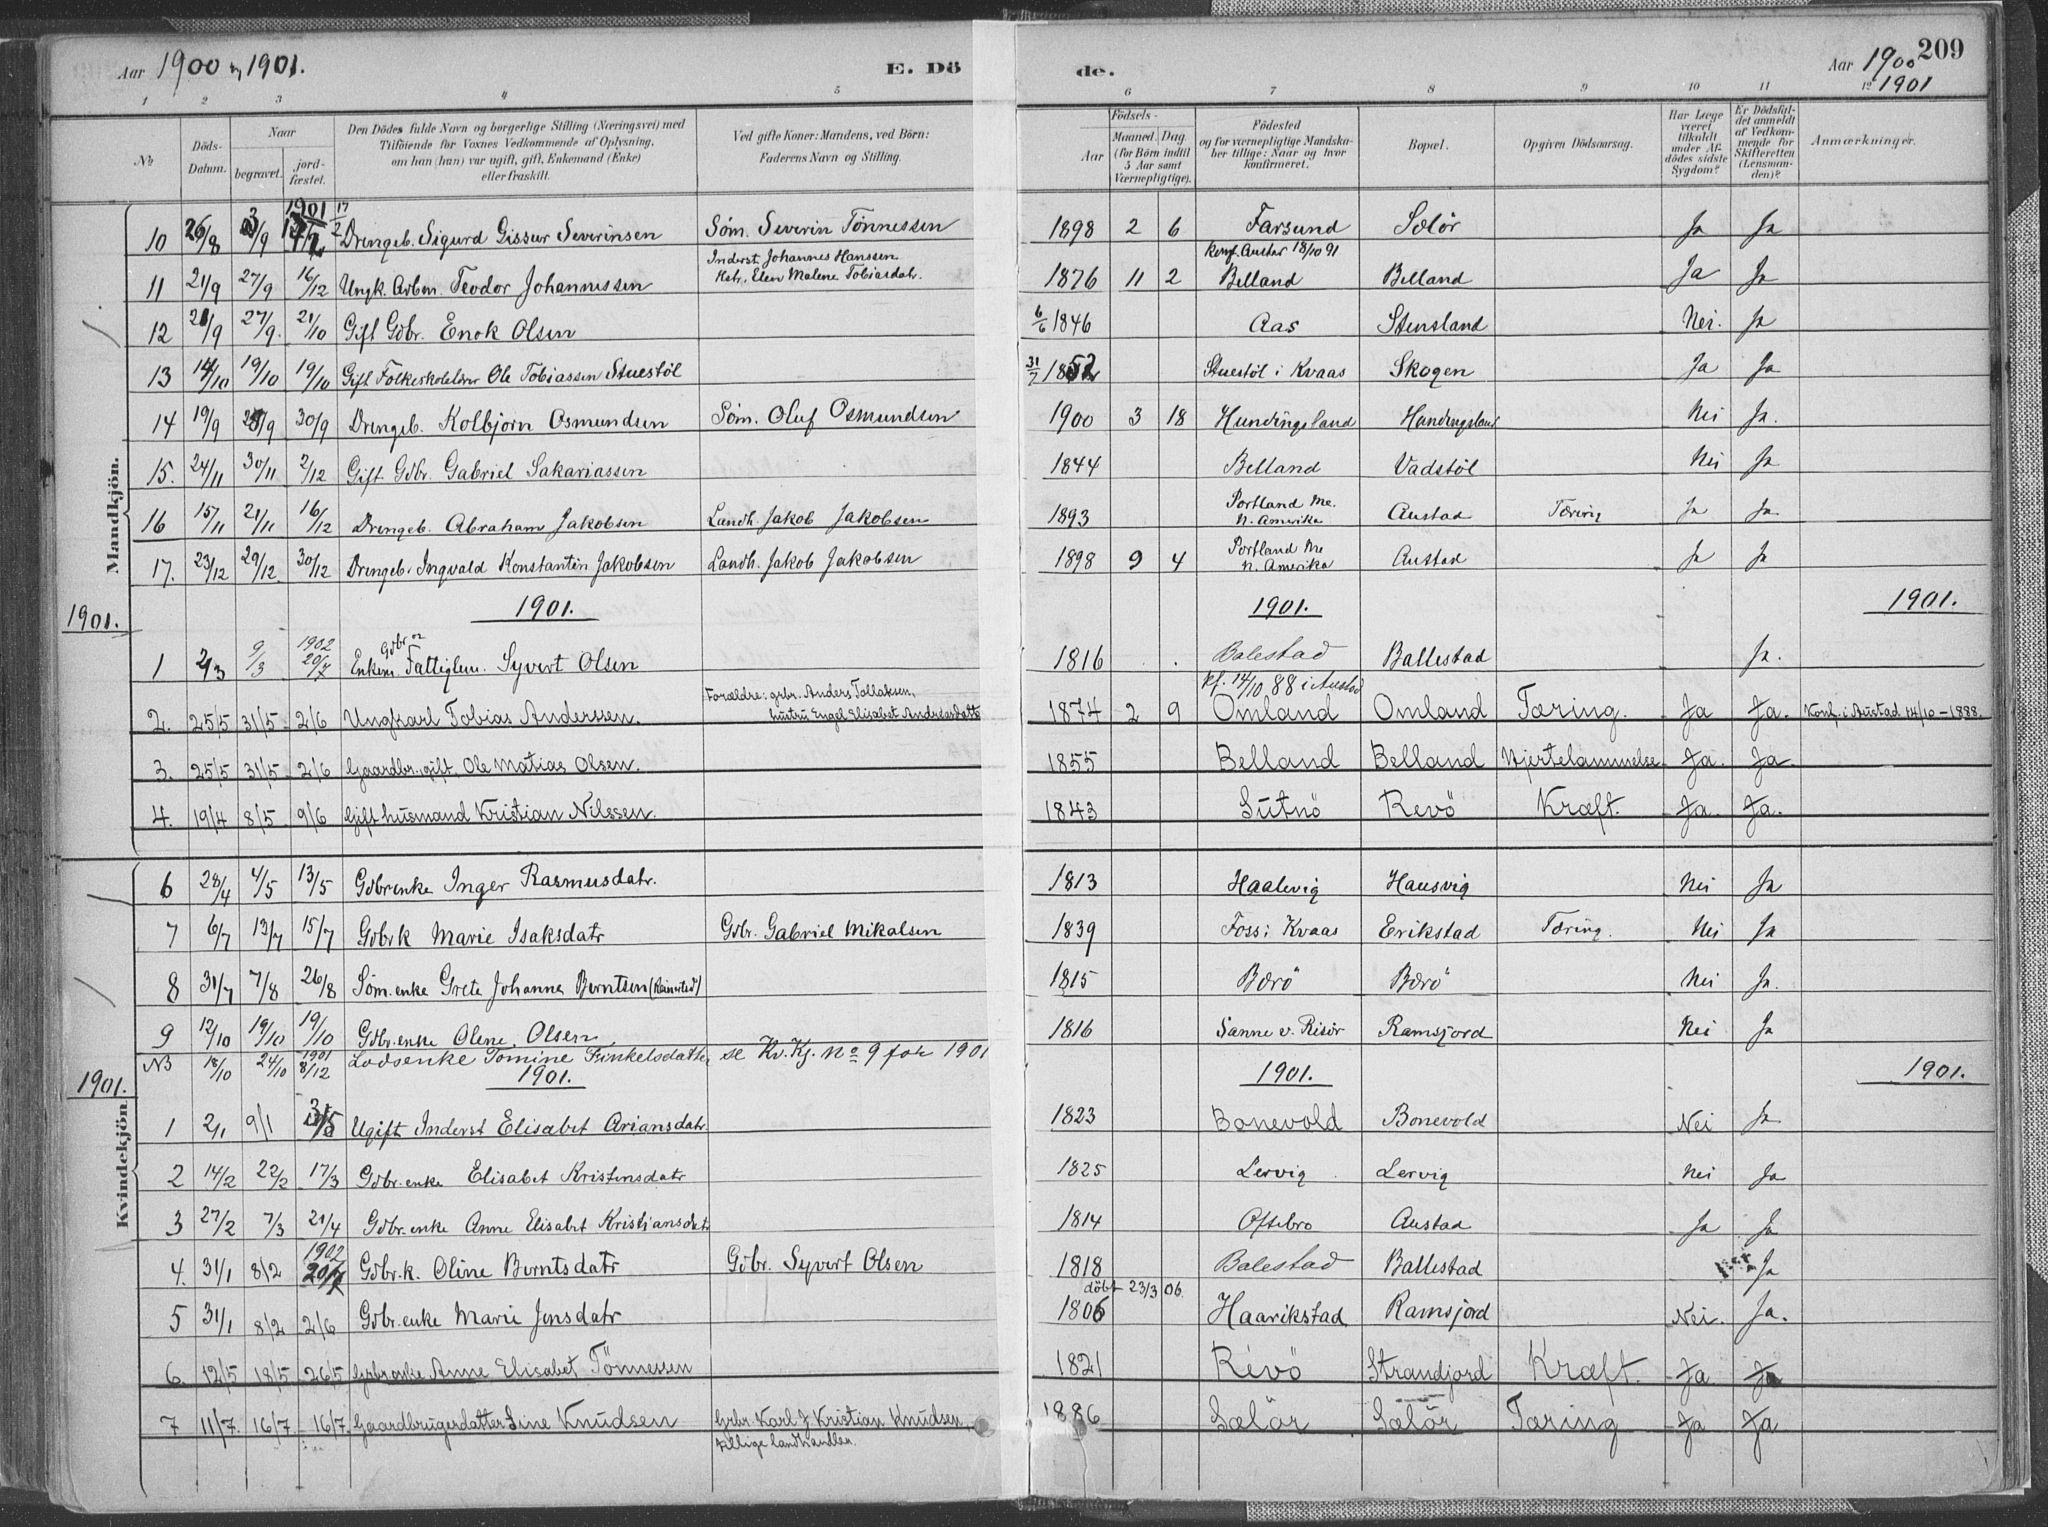 Aar 1900 og 1901. E. Dö de. Aar 1900 209
1901
1 2 3 4 5 6 7 8 9 10 11 12
No Döds-Datum. Naar begravet. jordfæstet. Den Dödes fulde Navn og borgerlige Stilling (Næringsvei) med Tilföiende for Voxnes Vedkommende af Oplysning, om han (hun) var ugift, gift, Enkemand (Enke) eller fraskilt. Ved gifte Koner: Mandens, ved Börn: Faderens Navn og Stilling. Födsels- Aar Maaned. Dag. (for Börn indtil 5 Aar samt Værnepligtige). Födested og for værnepligtige Mandskaber tillige: Naar og hvor konfirmeret. Bopæl. Opgiven Dödsaarsag. Har Læge været tilkaldt under Afdödes sidste Sygdom? Er Dödsfaldet anmeldt af Vedkommende for Skifteretten (Lensmanden)? Anmærkninger.
Mandkjön.
10 26/8 /9 1901 17/2 Drengeb. Sigurd Gissur Severinsen Söm. Severin Tönnessen 1898 2 6 Farsund Sælör Ja Ja
11 21/9 27/9 16/12 Ungk. Arbm. Teodor Johannessen Inderst Johannes Hanssen Hstr. Elen Malene Tobiasdatr. 1876 11 2 Konf. Austad 18/10 91 Belland Belland Ja Ja
12 21/9 27/9. 21/10 Gift Gbr. Enok Olsen 6/6 1846 Aas Stensland Nei. Ja
13 14/10 19/10 19/10 Gift Folkeskolelærer Ole Tobiassen Stuestöl 31/7 1852 Stuestöl i Kvaas Skogen Ja Ja
14 19/9 /9 30/9 Drengeb. Kolbjörn Osmundsen Söm. Oluf Osmundsen 1900 3 18 Hundingsland Hundingsland Nei Ja.
15. 24/11 30/11 2/12 Gift Gbr. Gabriel Sakariassen 1844 Belland Vadstöl Nei Ja
16 15/11 21/11 16/12 Drengeb. Abraham Jakobsen Landh. Jakob Jakobsen 1893 Portland Me. N. Amerika Austad Tæring Ja Ja.
17. 23/12 29/12 30/12 Drengeb. Ingvald Konstantin Jakobsen Landh. Jakob Jakobsen 1898 9 4 Portland Me N. Amerika Austad Ja Ja
1901. 1901. 1901. 1901.
1 2/3 9/3 1902 20/7 Enkem. Gbr. og Fattiglem. Syvert Olsen 1816 Balestad Ballestad Ja.
2. 25/5 31/5 2/6 Ungkarl Tobias Anderssen. Forældre: grbr. Anders Tollaksen, hustru Engel Elisabet Andreasdatter 1874 2 9 kf. 14/10 88 i Austad Omland Omland Tæring. Ja Ja. Konf. i Austad 14/10-1888.
3. 25/5 31/5 2/6 Gaardbr. gift. Ole Matias Olsen. 1855 Belland Belland Hjertelammelse Ja. Ja.
4. 19/4 8/5 9/6 Gift husmand Kristian Nilssen. 1843 Sutnö Revö Kræft. Ja. Ja.
6 28/4 4/5 13/5 Gbrenke Inger Rasmusdatr. 1813 Haalevig Hausvig Nei Ja
7 6/7 13/7 15/7 Gbrk Marie Isaksdatr Gbr. Gabriel Mikalsen 1839 Foss i Kvaas Erikstad Tæring. Nei Ja
8 31/7 7/8 26/8 Söm. enke Grete Johanne Berntsen 1815 Bærö Bærö Nei Ja.
9 12/10 19/10 19/10 Gbr. enke Olene Olsen 1816 Sanne v. Risör Ramsjord Nei Ja
NB 18/10 24/10 1901 8/12 Lodsenke Tomine Finkelsdatter, se Kv. Kj. No 9 for 1901
1901. 1901. 1901. 1901.
Kvindekjön.
1 2/1 9/1 Ugift Inderst Elisabet Ariansdatr 1823 Bonevold Bonevold Nei Ja
2 14/2 22/2 17/3 Gbr. enke Elisabet Kristensdatr 1825 Lervig Lervig Nei Ja
3 27/2 7/3 21/4 Gbr. enke Anne Elisabet Kristiansdatr 1814 Oftebro Austad Ja Ja
4. 31/1 8/2 1902 20/7 Gbr. k. Oline Berntsdatr Gbr. Syvert Olsen 1818 Balestad Ballestad Ja
5 31/1 8/2 2/6 Gbr. enke Marie Jensdatr döbt 23/3 06. 1806 Haarikstad Ramsjord Nei. Ja.
6. 12/5 18/5 26/5 Grbr enke Anne Elisabet Tönnessen 1821 Revö Strandjord Kræft. Ja. Ja
7 11/7. 16/7 16/7. Gaardbrugerdatter Line Knudsen Grbr. Karl J Kristian Knudsen, tillige landhandler. 1886 Sælör Sælör Tæring Ja Ja